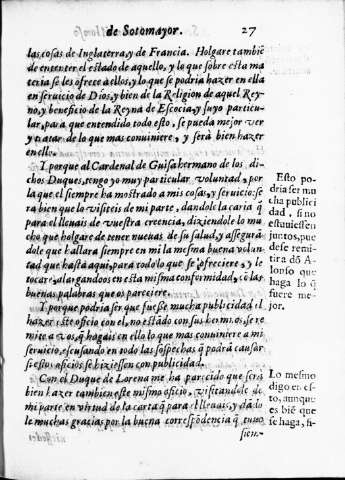 de Sotomayor. 27
las cosas de Inglaterra, y de Francia. Holgare tambiẽ
de entender el estado de aquello, y lo que sobre esta ma
teria se les ofrece à ellos, y lo que se podria hazer en ella
en seruicio de Dios, y bien de la Religion de aquel Rey-
no, y beneficio de la Reyna de Escocia, y suyo particu-
lar, para que entendido todo esto, se pueda mejor ver
y tratar de lo que mas conuiniere, y serà bien hazer
en ello.
Y porque al Cardenal de Guisa hermano de los di-
chos Duques, tengo yo muy particular voluntad, por
la que el siempre ha mostrado a mis cosas, y seruicio: se
ra bien que lo visiteis de mi parte, dandole la carta q̃
para el lleuais de vuestra creencia, diziendole lo mu
cho que holgare de tener nueuas de su salud, y assegurã
dole que hallara siempre en mi la mesma buena volun
tad que hasta aqui, para todo lo que se ofreciere, y le
tocare, alargandoos en esta misma conformidad, cõ las
buenas palabras que os pareciere.
Y porque podria ser que fuesse mucha publicidad el
hazer este oficio con el, no estãdo con sus hermanos, se re
mite a vos, q̃ hagais en ello lo que mas conuiniere a mi
seruicio, escusando en todo las sospechas q̃ podrã causar
si estos oficios se hiziessen con publicidad.
Con el Duque de Lorena me ha parecido que serà
bien hazer tambien este mismo oficio, visitandole de
mi parte en virtud de la carta q̃ para el lleuais, y dãdo
le muchas gracias por la buena correspõdencia q̃ tuuo
sien-
Esto po-
dria ser mu
cha publici
dad, si no
estuuiessen
juntos, pue
dese remi-
tira dõ A-
lonso que
haga lo q̃
fuere me-
jor.
Lo mesmo
digo en es-
to, aunque
es biẽ que
se haga, si-